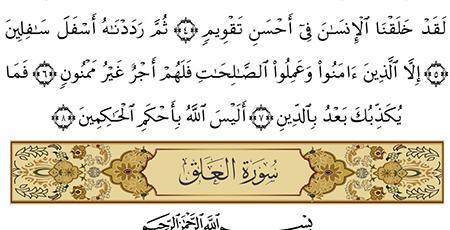 لَقَدْ خَلَقْنَا الْإِنسَـٰنَ فِىٓ أَحْسَنِ تَقْوِيمٍ ﴿٤﴾ ثُمَّ رَدَدْنَـٰهُ أَسْفَلَ سَـٰفِلِينَ
﴿٥﴾ إِلَّا الَّذِينَ ءَامَنُوا۟ وَعَمِلُوا۟ الصَّـٰلِحَـٰتِ فَلَهُمْ أَجْرٌ غَيْرُ مَمْنُونٍ ﴿٦﴾ فَمَا
يُكَذِّبُكَ بَعْدُ بِالدِّينِ ﴿٧﴾ أَلَيْسَ اللَّهُ بِأَحْكَمِ الْحَـٰكِمِينَ ﴿٨﴾
سُورَةُ العَلَق
بِسْمِ اللَّهِ الرَّحْمَـٰنِ الرَّحِيمِ